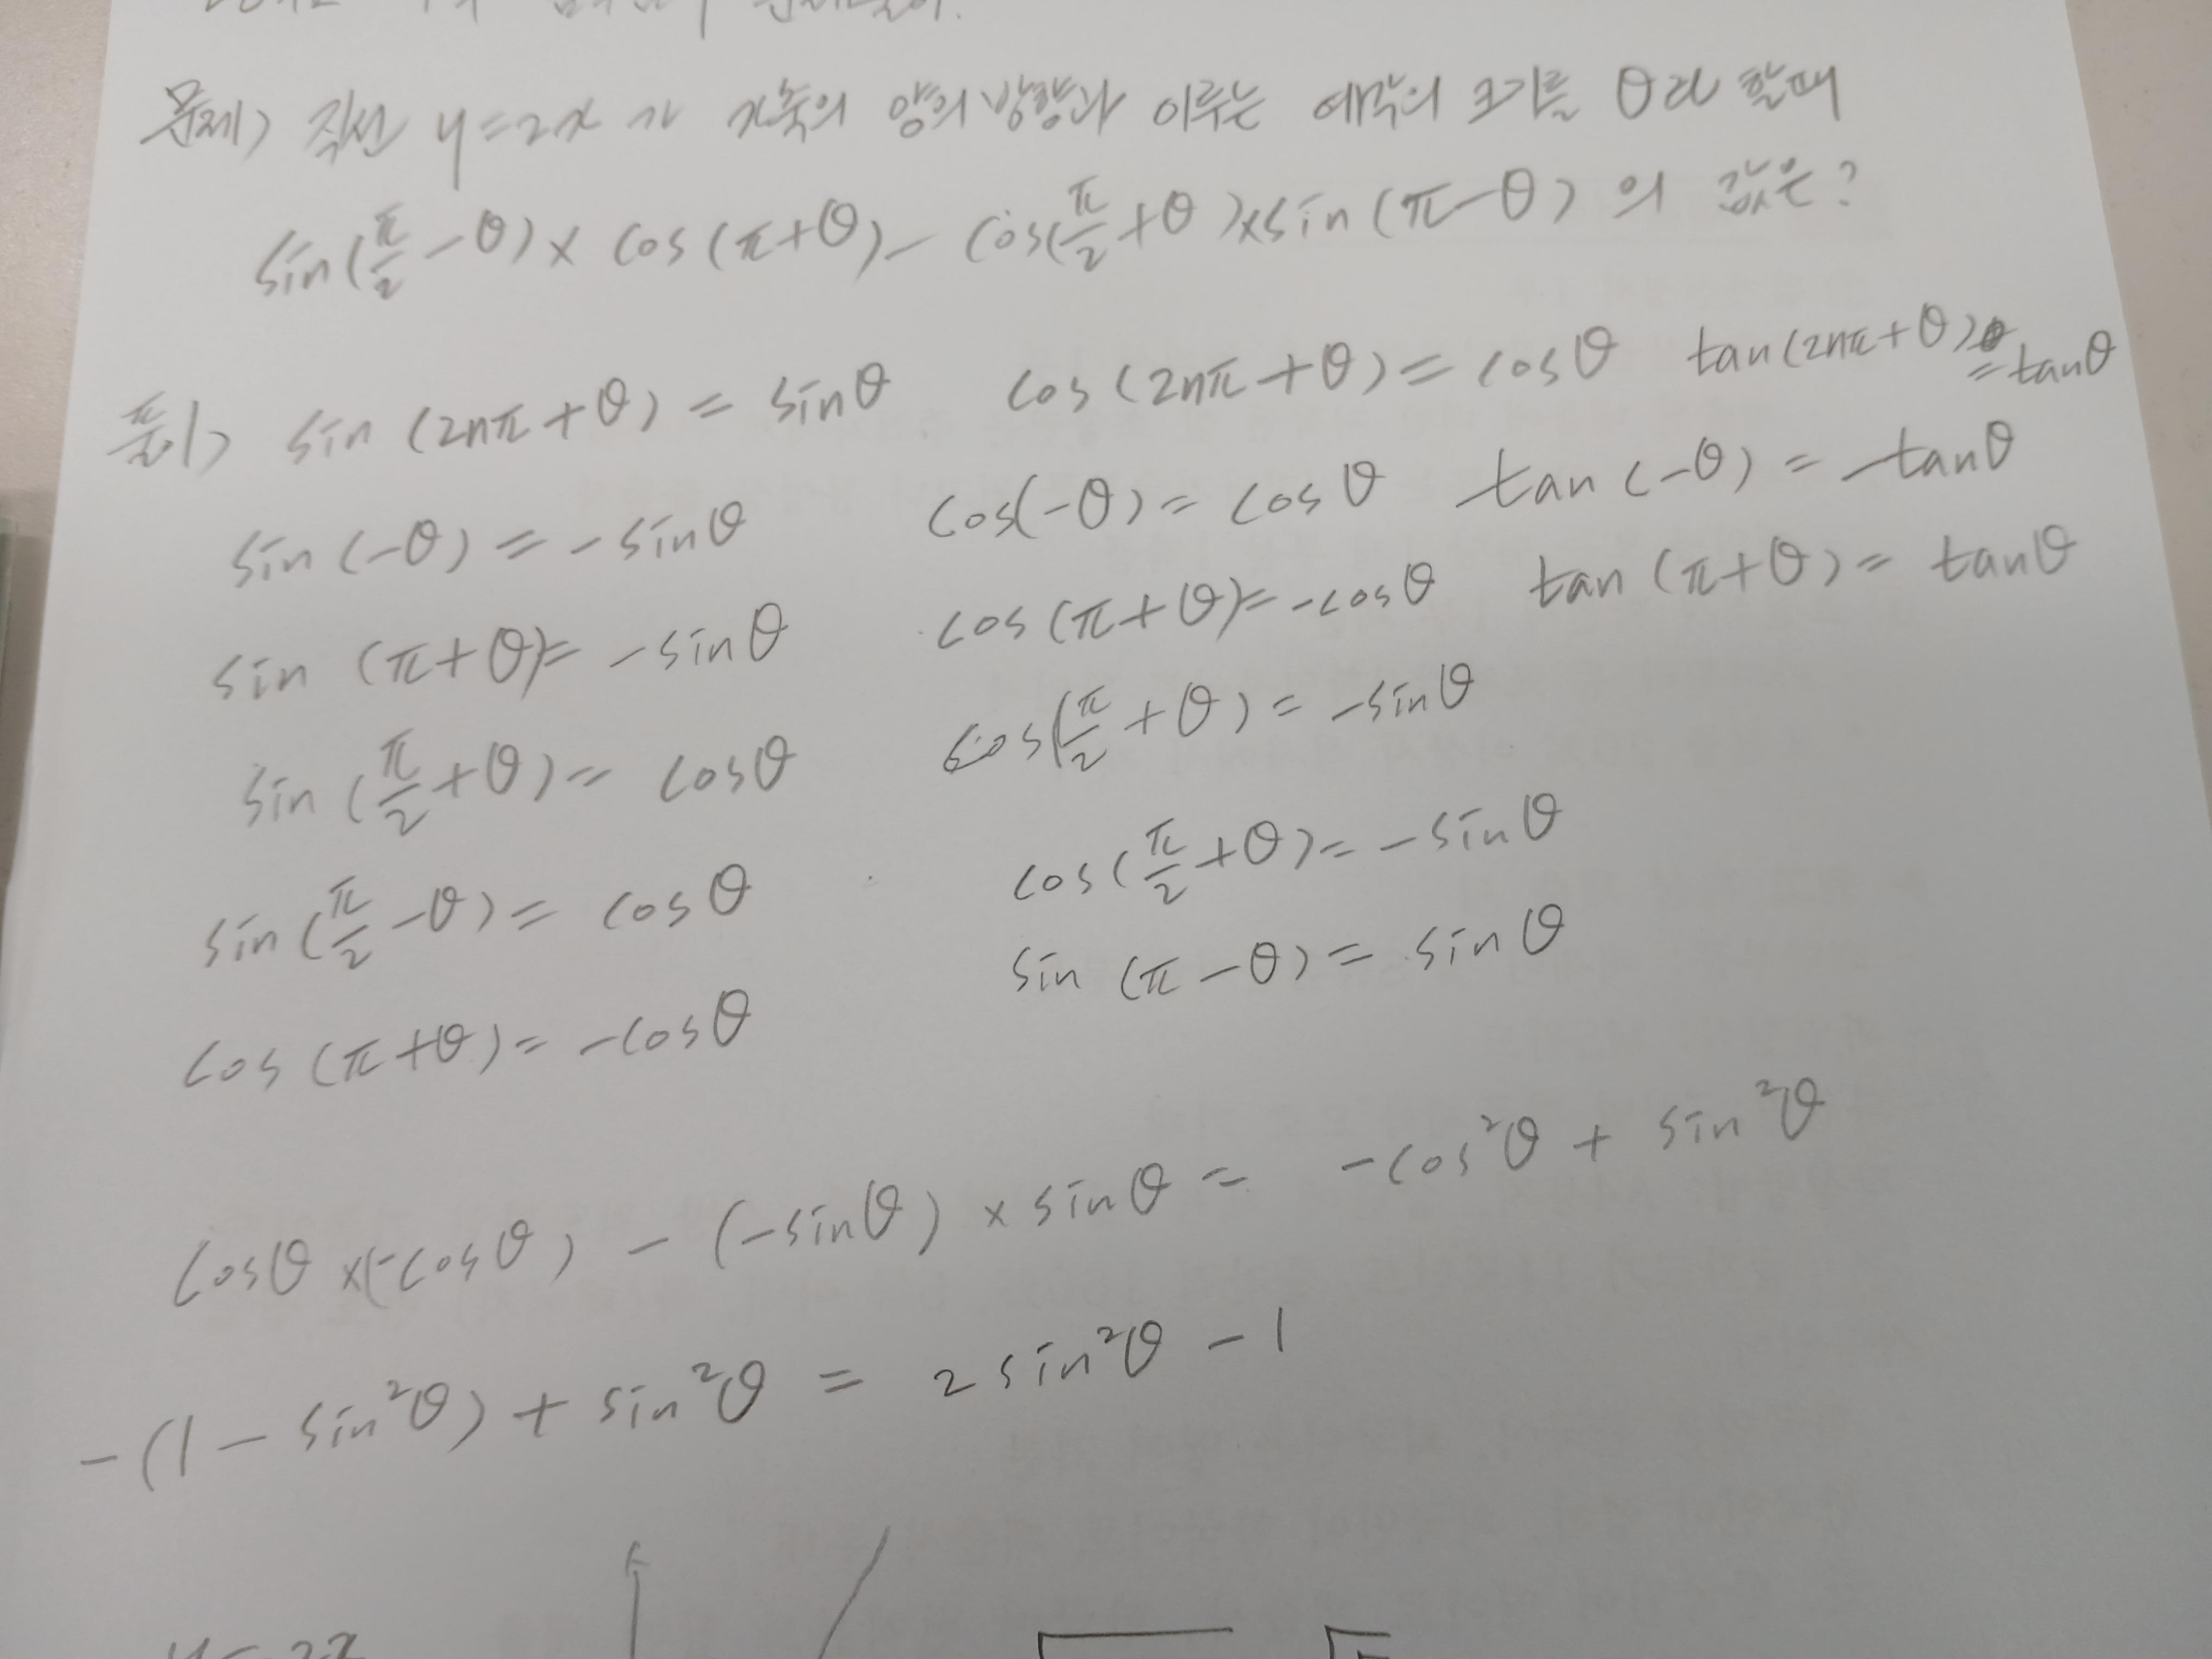 문제) 직선 y=2x 가 x축의 양의 방향과 이루는 예각의 크기를 θ라 할때
sin(π/2-θ)×cos(π+θ)-cos(π/2+θ)×sin(π-θ)의 값은?
풀이) sin(2nπ+θ)=sinθ cos(2nπ+θ)=cosθ tan(2nπ+θ)=tanθ
sin(-θ)=-sinθ cos(-θ)=cosθ tan(-θ)=-tanθ
sin(π+θ)=-sinθ cos(π+θ)=-cosθ tan(π+θ)=tanθ
sin(π/2+θ)=cosθ cos(π/2+θ)=-sinθ
sin(π/2-θ)=cosθ cos(π/2+θ)=-sinθ
cos(π+θ)=-cosθ sin(π-θ)=sinθ
cosθ×(-cosθ)-(-sinθ)×sinθ=-cos²θ+sin²θ
-(1-sin²θ)+sin²θ=2sin²θ-1
y=2x